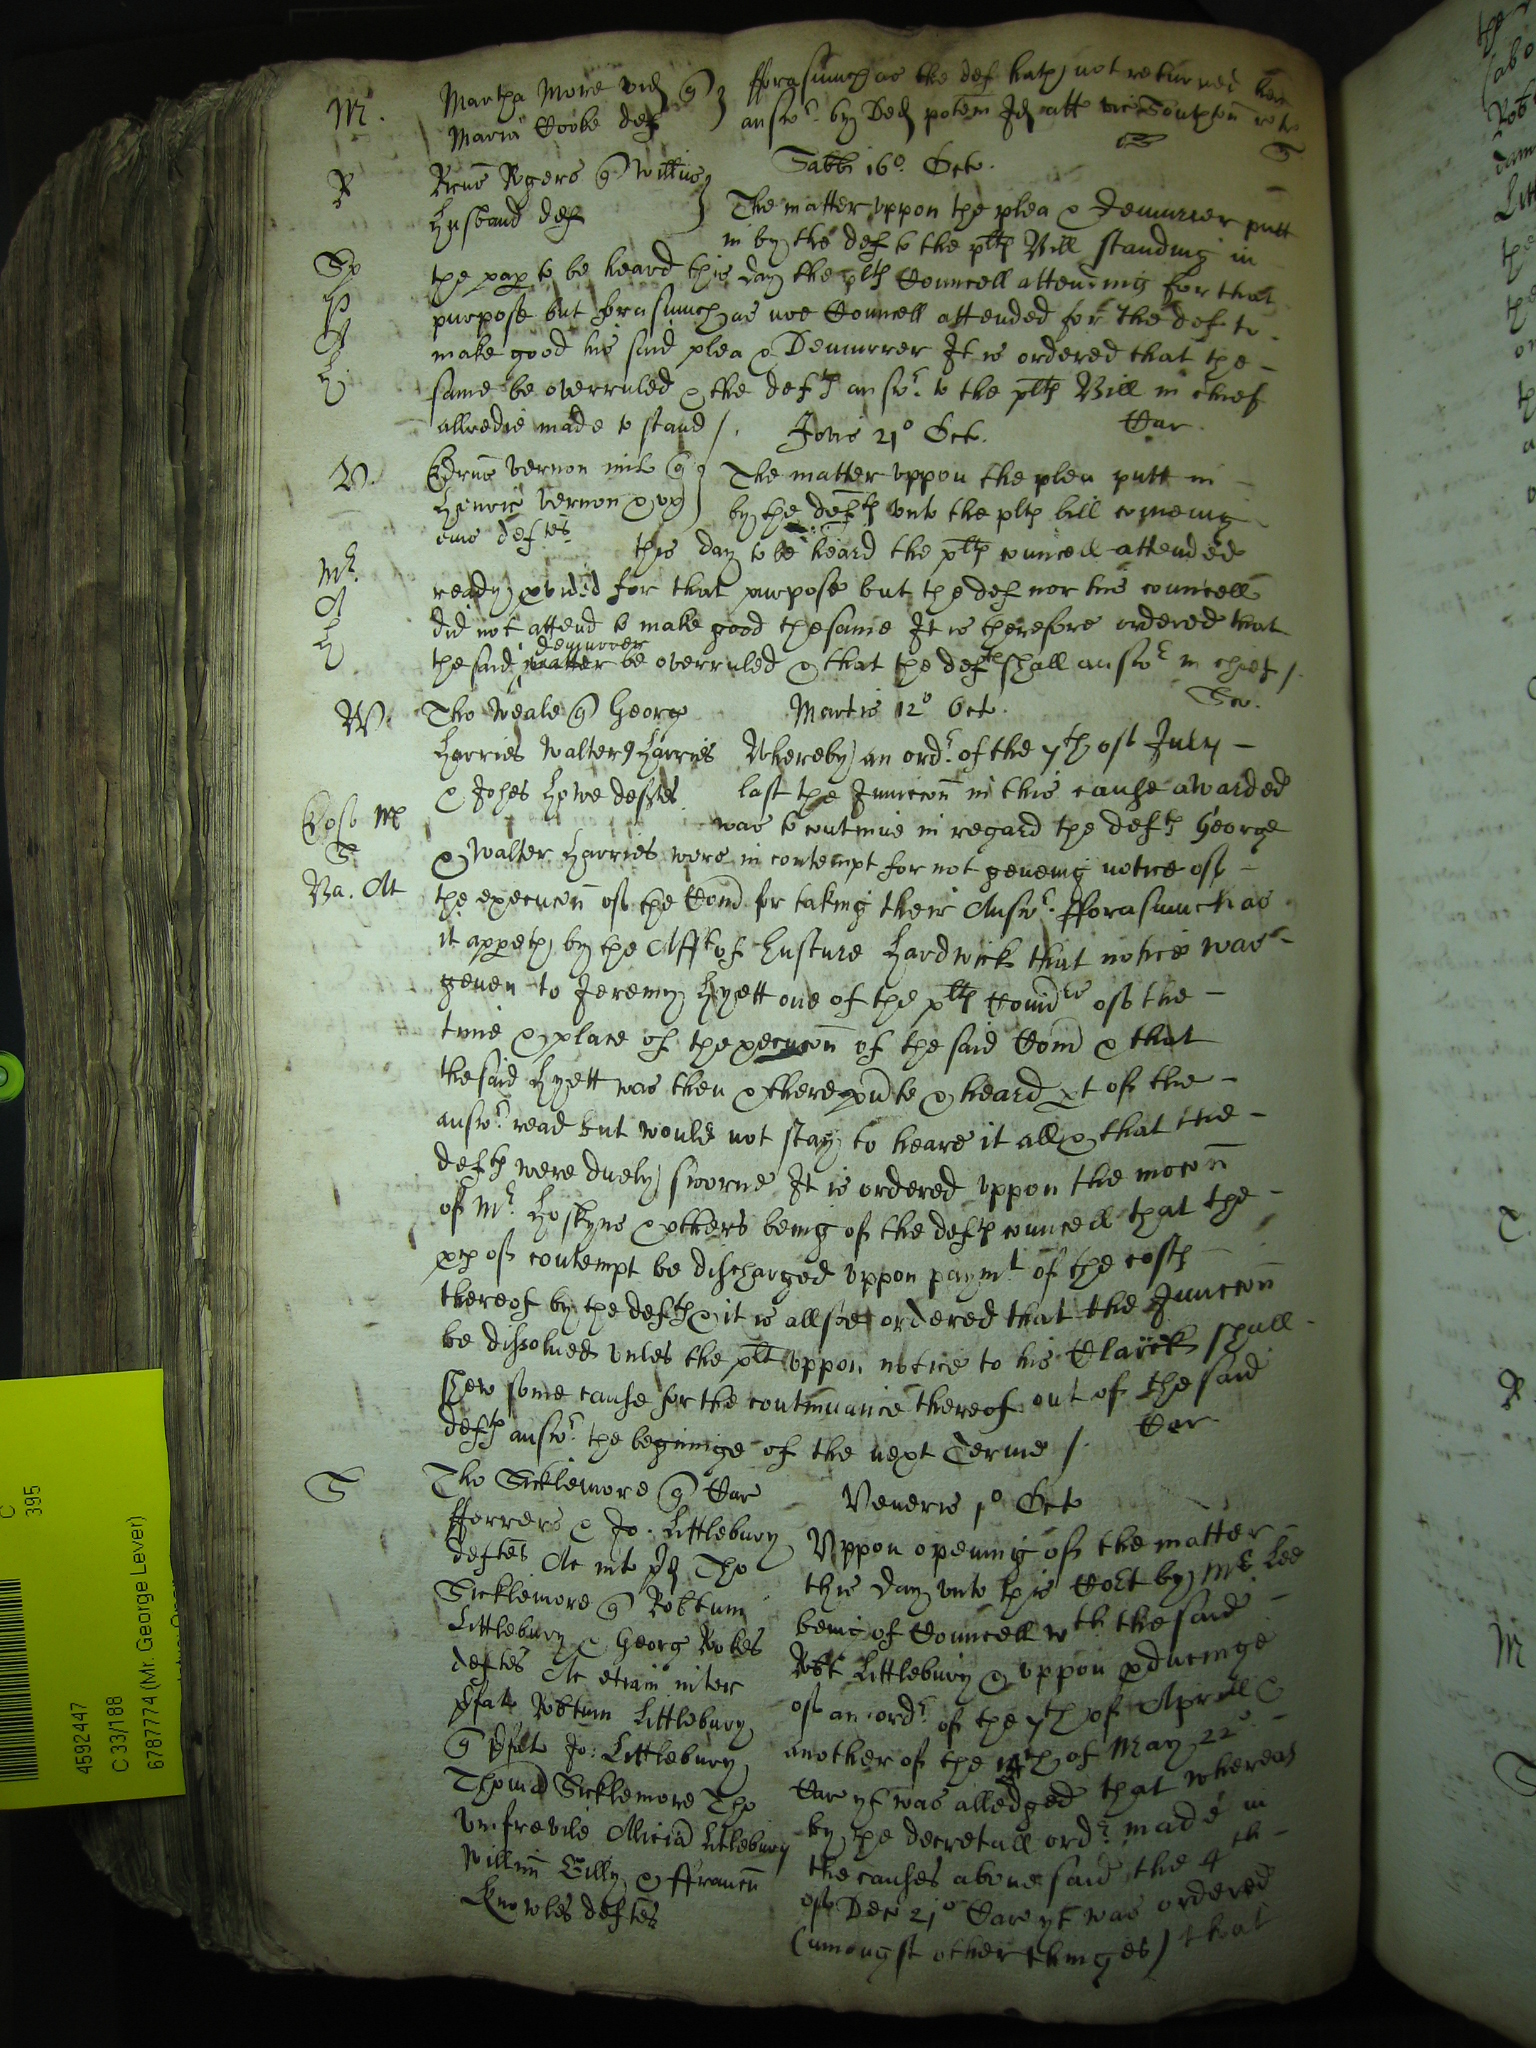 M.
Martha More vid q
Maria Cooke def
fforasmuch as the def hath not returned her
answr. by Ded potem Id att vic Southton
Sabbi 16o. Octo.
R
Rogers q Willus
Husband def
The matter uppon the plea & demurrer putt
in by the def to the plts Bill standing in
the pap to be heard this day the plts Councell attending for that
purpose but forasmuch as noe Councell attended for the def to
make good his said plea & Demurrer It is ordered that the
same be overruled & the defts answr. to the plts Bill in chief
allredie made to stand /.
Car.
Jovis 21o Oct.
V.
Vernon mil q
Henric Vernon & ux
eius deftes
The matter uppon the plea putt in
by the defts unto the plts bill comeing
this day to be heard the plts councell attended
ready pvided for that purpose but the def nor his councell
did not attend to make good the same It is therefore ordered that
demurrer
the said matter be overruled & that the defts shall answr in chief /.
W.
Tho Weale q George
Harries Walter Harries
& Johes Howe deftes
Martis 12o Octo.
Whereby an ordr. of the 7th of July
last the Iniuccon in this cause awarded
was to contınue in regard the defts George
& Walter Harries were in contempt for not geveing notice of
the execucon of the Com for taking their Answr. fforasmuch as
it appeth by the Afft of Eustace Hardwick that notice was
geven to Jeremy Hyett one of the plts Comrs of the
time & place of the execucon of the said Com & that
the said Hyett was then & there psnte & heard pt of the
answr. read but would not stay to heare it all & that the
defts were duely sworne It is ordered uppon the mocon
of Mr. Hoskyns & others being of the defts councell that the
pcs of contempt be discharged uppon paymt of the costs
thereof by the defts & it is allsoe ordered that the Iniuccon
be dissolved unles the plt uppon notice to his Clarck shall
shew some cause for the continuance thereof out of the said
defts answr. the beginınge of the next Terme /.
Car
S
Tho Sicklemore q Car
fforrers & Jo: Littlebury
deftes Ac inter Tho
Sicklemore q Robtum
Littlebury & Georg Rokes
deftes Ac etiam inter
pfat Robtum Littlebury
q pfat Jo: Littlebury
Thomā Sicklemore Tho
Umfrevile Aliciā Litlebury
Willm Gilly & ffrancū
Knowles deftes
Veneris 1o Octo
Uppon opening of the matter
this day unto this Cort by Mr. Lee
being of Councell wth the said
Robt Littlebury & uppon pducinge
of an ordr. of the 7th of Aprill &
another of the th of May 22o
Car yt was alledged that whereas
by the decretall ordr. made in
the causes above said the 4th
of Dec 21o Car yt was ordered
(amongst other thinges) that
C
395
4592447
C 33/188
6787774 (Mr. George Lever)